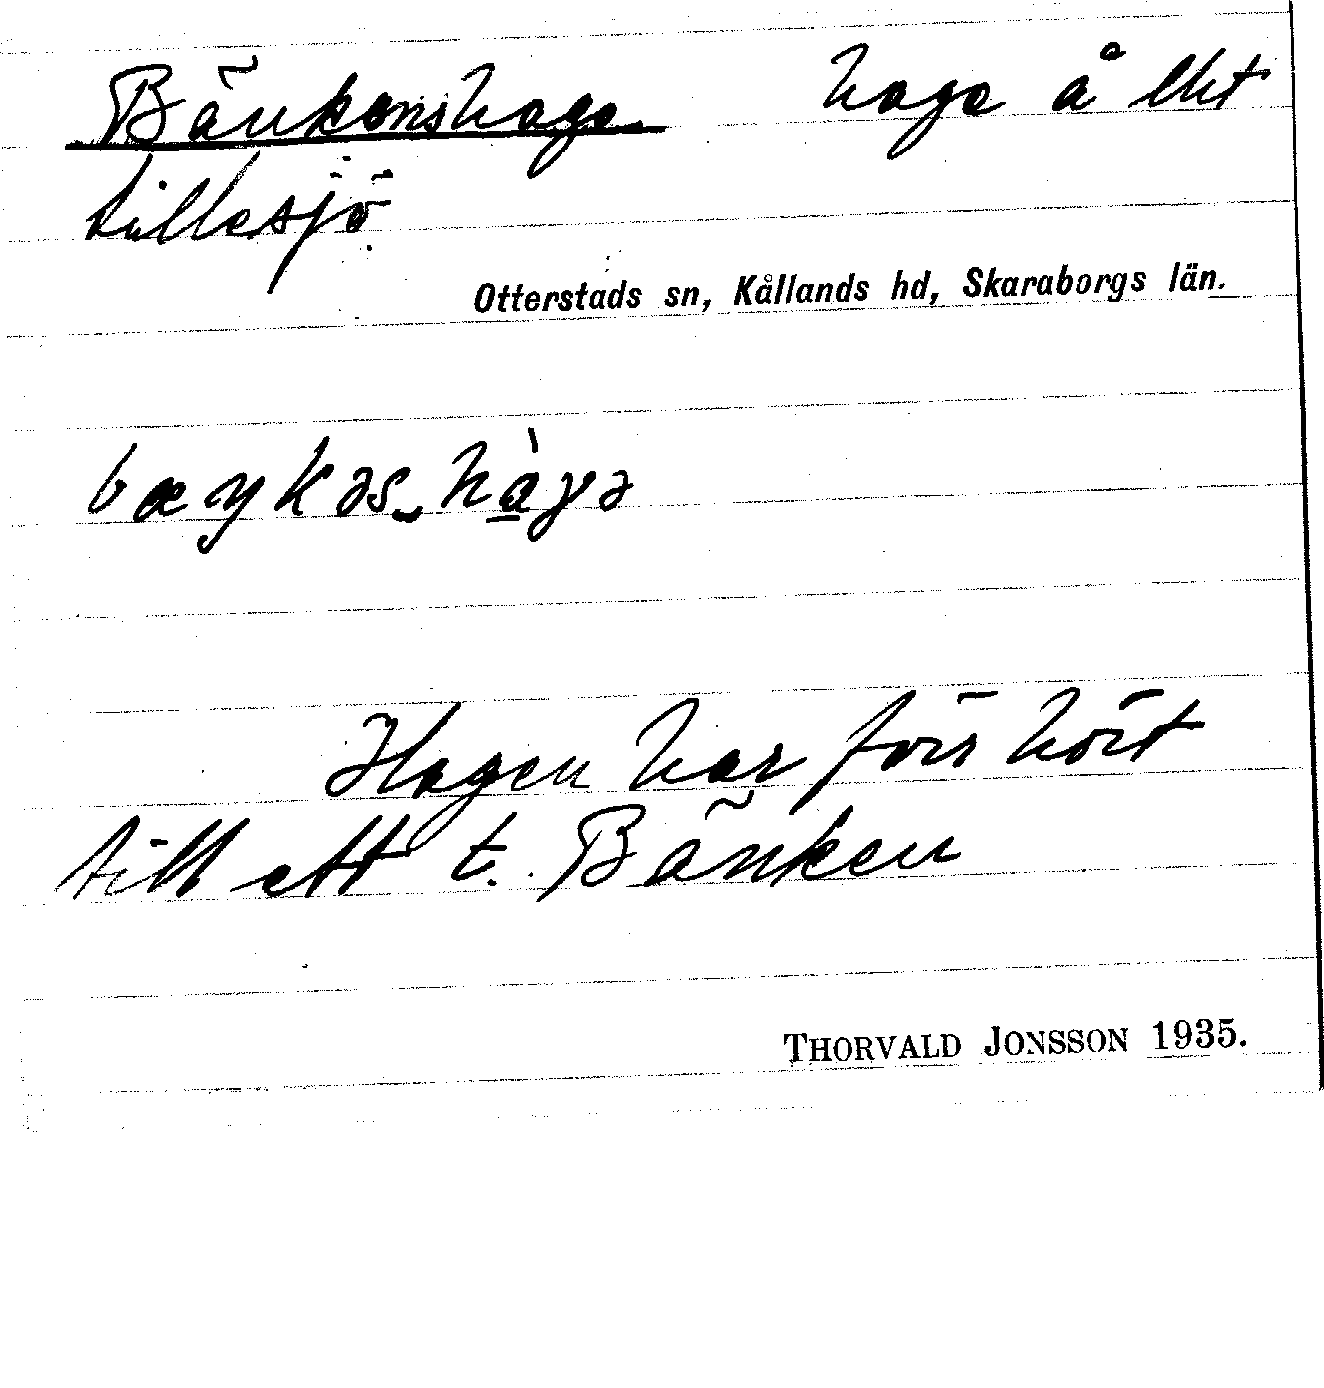 Bänkenshage hage å lht
Lillesjö
Otterstads sn, Kållands hd, Skaraborgs län.
bæŋkəs hàɣə
Hagen har förr hört
till ett t. Bänken
THORVALD JONSSON 1935.